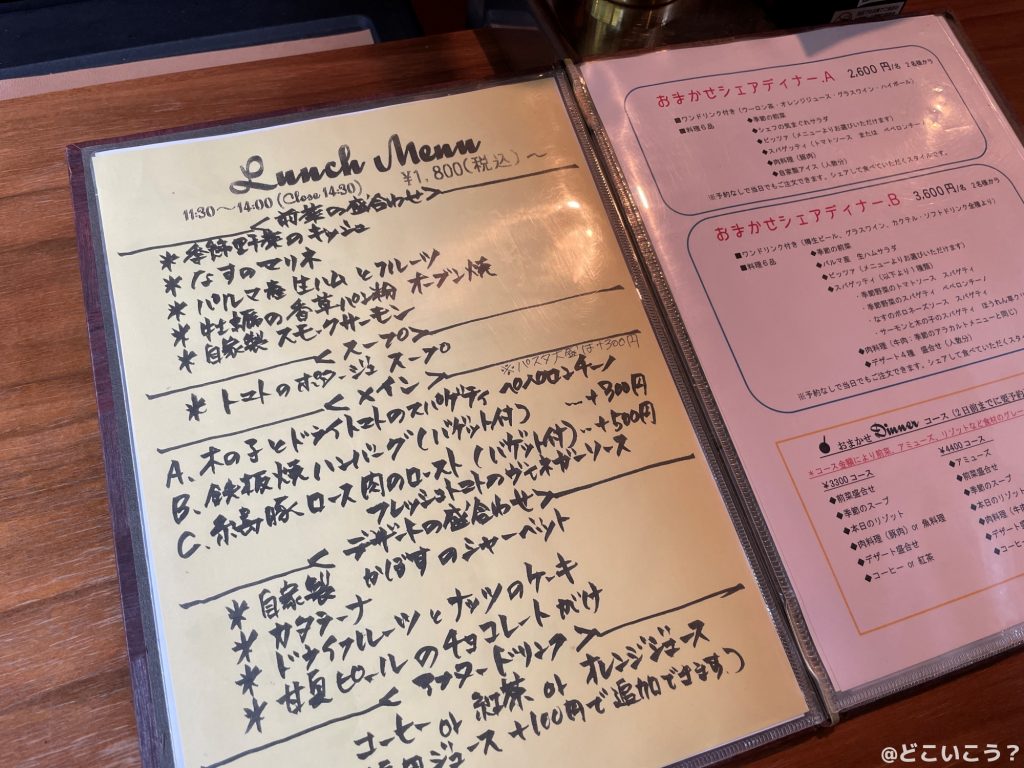 Lunch Menu
11:30～14:00 (Close 14:30) ¥1,800(税込)～
<前菜の盛合わせ>
* 季節野菜のキッシュ
* なすのマリネ
* パルマ産 生ハムとフルーツ
* 牡蠣の香草パン粉 オーブン焼
* 自家製 スモークサーモン
<スープ>
* トマトのポタージュスープ
<メイン> ※パスタ大盛は+300円
A. 木の子とドライトマトのスパゲティ ペペロンチーノ
B. 鉄板焼ハンバーグ(バゲット付) … +300円
C. 糸島豚ロース肉のロースト(バゲット付) … +500円
フレッシュトマトのヴィネガーソース
<デザートの盛合わせ>
* 自家製 かぼすのシャーベット
* カタラーナ
* ドライフルーツとナッツのケーキ
* 甘夏ピールのチョコレートがけ
<アフタードリンク>
コーヒー or 紅茶 or オレンジジュース
ジュース +100円で追加できます。)
おまかせシェアディナー.A 2.600 円/名 2名様から
■ワンドリンク付き(ウーロン茶・オレンジジュース・グラスワイン・ハイボール)
■料理6品 ◆季節の前菜
◆シェフの気まぐれサラダ
◆ピッツァ(メニューよりお選びいただけます)
◆スパゲッティ(トマトソース または ペペロンチー
◆肉料理(豚肉)
◆自家製アイス(人数分)
※予約なしで当日でもご注文できます。シェアして食べていただくスタイルです。
おまかせシェアディナー.B 3,600円/名 2名様から
■ワンドリンク付き(樽生ビール、グラスワイン、カクテル・ソフトドリンク全種より)
■料理6品 ◆季節の前菜
◆パルマ産 生ハムサラダ
◆ピッツァ(メニューよりお選びいただけます)
◆スパゲッティ(以下より1種類)
・季節野菜のトマトソース スパゲティ
・季節野菜のスパゲティ ペペロンチーノ
・なすのボロネーズソース スパゲティ
・サーモンと木の子のスパゲティ ほうれん草ク
◆肉料理(牛肉:季節のアラカルトメニューと同じ)
◆デザート4種 盛合せ(人数分)
※予約なしで当日でもご注文できます。シェアして食べていただくスタ
おまかせ Dinner コース(2日前までに要予約
*コース金額により前菜、アミューズ、リゾットなど食材のグレー
¥3300コース
◆前菜盛合せ
◆季節のスープ
◆本日のリゾット
◆肉料理(豚肉)or 魚料理
◆デザート盛合せ
◆コーヒー or 紅茶
¥4400コース
◆アミューズ
◆前菜盛合せ
◆季節のスープ
◆本日のリゾッ
◆肉料理(牛
◆デザート
◆コーヒー
@どこいこう?